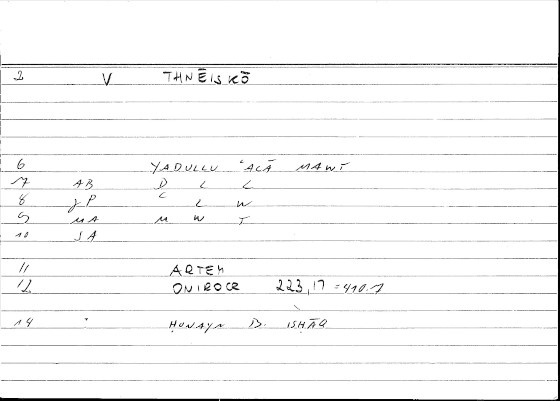 2 V THNĒISKŌ
6 YADULLU ʿALĀ MAWT
7 AB D L L
8 JP ʿ L W
9 MA M W T
10 SA
11 ARTEM
12 ONIROCR 223,17 = 410.7
14 ḤUNAYN B. ISḤĀQ